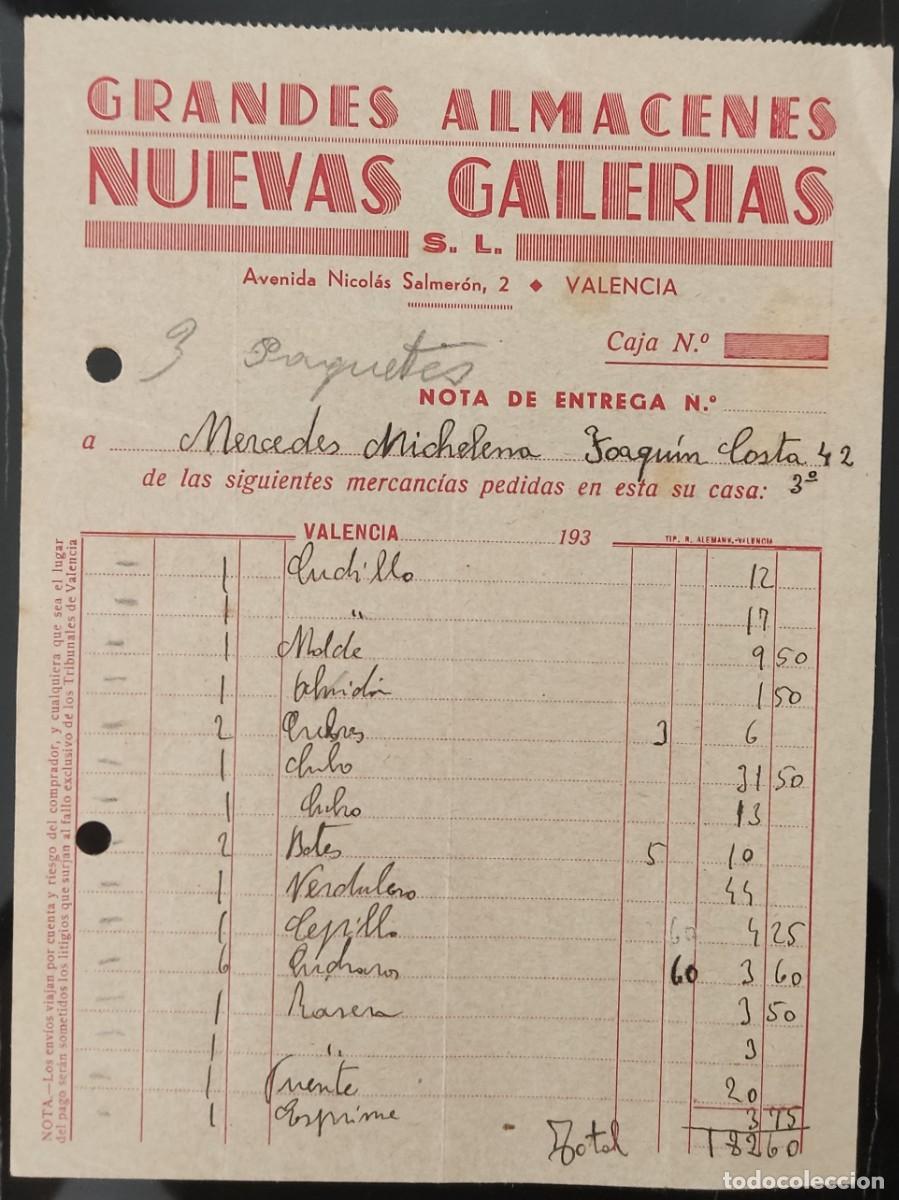 GRANDES ALMACENES
NUEVAS GALERIAS
S. L.
Avenida Nicolás Salmerón, 2 ◆ VALENCIA
Caja N.º
3 Paquetes
NOTA DE ENTREGA N.º
a Mercedes Michelena Joaquín Costa 42
de las siguientes mercancías pedidas en esta su casa: 3º
VALENCIA 193 TIP. R. ALEMANY.-VALENCIA
1 Cuchillo 12
1 " 17
1 Molde 9 50
1 1 50
2 3 6
1 Cubo 31 50
1 Cubo 13
2 Botes 5 10
1 Verdulero 44
1 Cepillo 60 4 25
6 Cucharas 60 3 60
1 Rasera 3 50
1 " 3
1 Fuente 20
1 Exprime 3 75
Total 182 60
NOTA.—Los envíos viajan por cuenta y riesgo del comprador, y cualquiera que sea el lugar
del pago serán sometidos los litigios que surjan al fallo exclusivo de los Tribunales de Valencia
todocoleccion